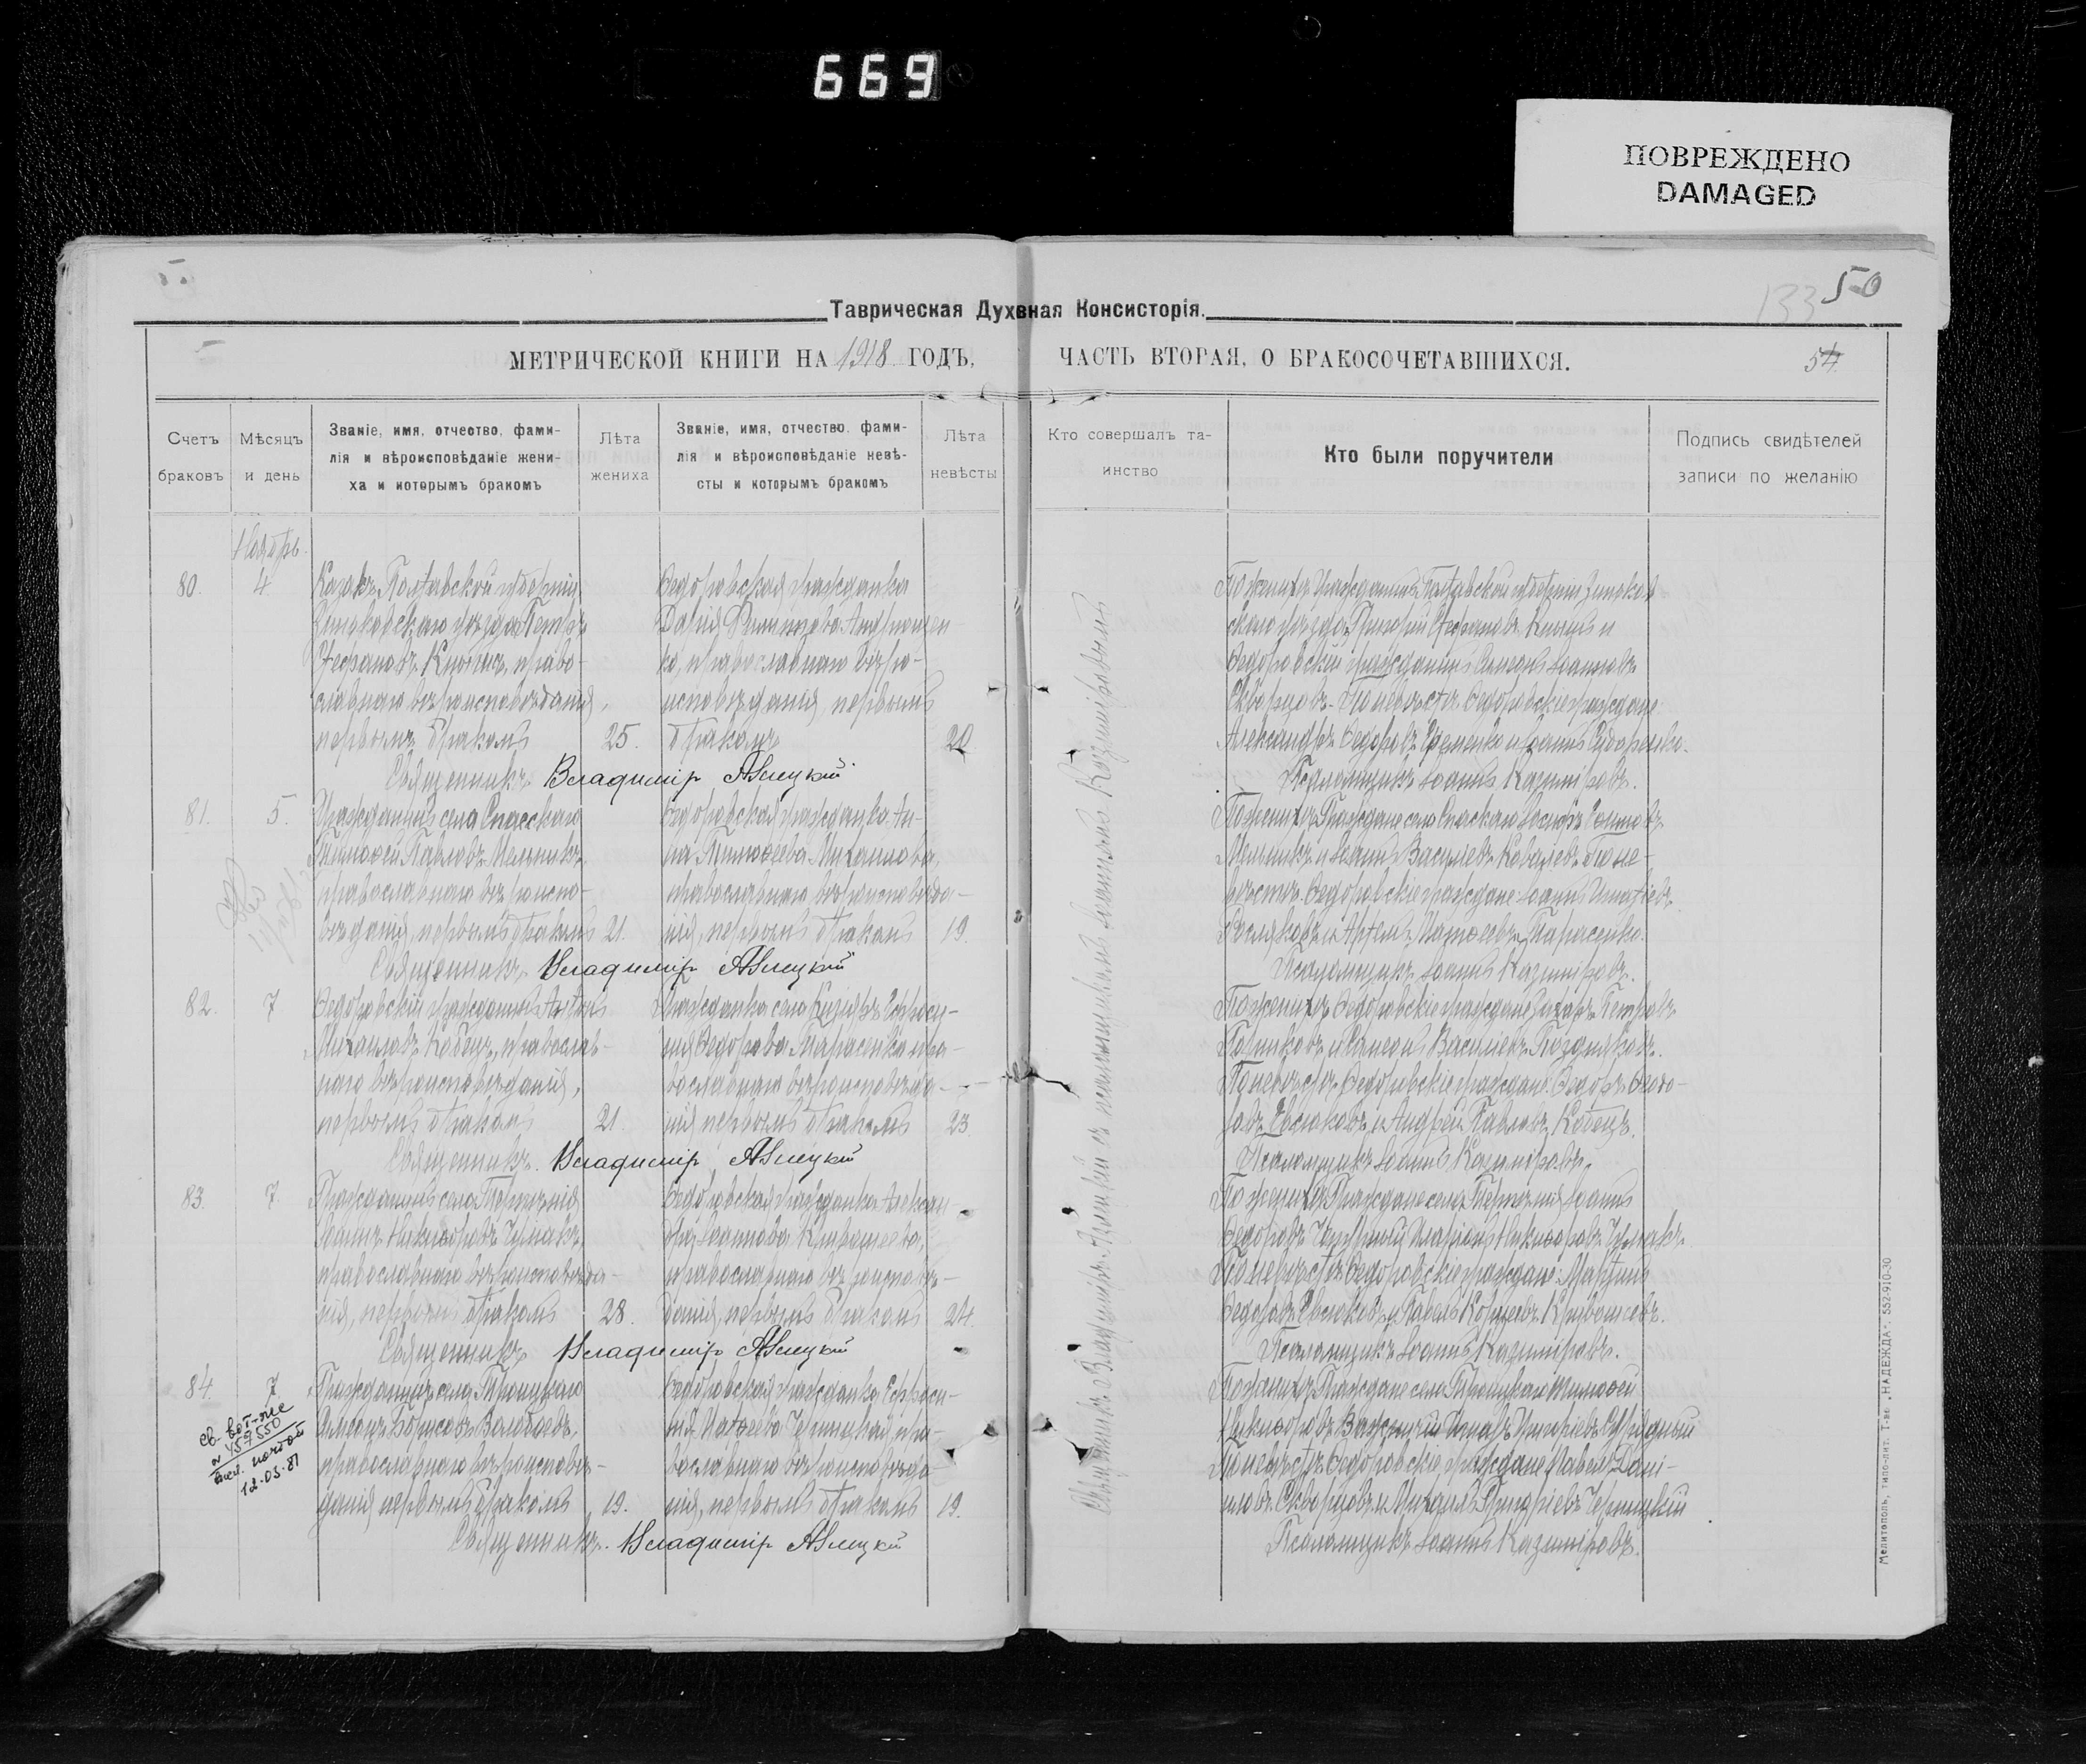 669
ПОВРЕЖДЕНО
DAMAGED
133 50
Таврическая Духвная Консисторія.
МЕТРИЧЕСКОЙ КНИГИ НА 1918 ГОДЪ,
ЧАСТЬ ВТОРАЯ, О БРАКОСОЧЕТАВШИХСЯ.
54
Счетъ браковъ
Мѣсяцъ и день
Званіе, имя, отчество, фами-
лія и вѣроисповѣданіе жени-
ха и которымъ бракомъ
Лѣта жениха
Званіе, имя, отчество, фами-
лія и вѣроисповѣданіе невѣ-
сты и которымъ бракомъ
Лѣта невѣсты
Кто совершалъ та-
инство
Кто были поручители
Подпись свидѣтелей
записи по желанію
Ноябрь
80. 4
Казакъ Полтавской губерніи
уѣзда Петръ
Стефановъ право-
славнаго вѣроисповѣданія,
первымъ бракомъ 25.
Ѳедоровская гражданка
Дарія Филиппова Андрющен-
ко, православнаго вѣро-
исповѣданія, первымъ
бракомъ 20
По женихѣ гражданинъ Полтавской губерніи Зиньков
скаго уѣзда Григорій Стефановъ и
Ѳедоровскій гражданинъ Симеонъ Іоанновъ
Скворцовъ. По невѣстѣ Ѳедоровскіе граждане
Александръ Ѳедоровъ Ефименко и Іоаннъ
Священникъ Владиміръ
Псаломщикъ Іоаннъ Казиміровъ.
81. 5.
Гражданинъ села Спасскаго
Тимоѳей Павловъ Мельникъ,
православнаго вѣроиспо-
вѣданія, первымъ бракомъ 21.
Ѳедоровская гражданка Ан-
на Тимоѳеева Михайлова,
православнаго вѣроисповѣда-
нія, первымъ бракомъ 19.
По женихѣ Граждане села Спасскаго Іосифъ
Мельникъ и Іоаннъ Васильевъ Ковалевъ. По не-
вѣстѣ Ѳедоровскіе граждане Іоаннъ Игнатіевъ
и Артемъ Матѳеевъ Тарасенко.
Священникъ Владиміръ
Псаломщикъ Іоаннъ Казиміровъ.
82. 7
Ѳедоровскій гражданинъ Антонъ
Михаиловъ Кобецъ, православ-
наго вѣроисповѣданія,
первымъ бракомъ 21.
Гражданка села Кизіяръ Евфроси-
нія Ѳедорова Тарасенко пра-
вославнаго вѣроисповѣда-
нія первымъ бракомъ 23.
По женихѣ Ѳедоровскіе граждане Захаръ Петровъ
и Симеонъ Васильевъ Поздняковъ.
По невѣстѣ Ѳедоровскіе граждане: Ѳедоръ Ѳедо-
ровъ Евсюковъ и Андрей Павловъ Кобецъ.
Священникъ Владиміръ
Псаломщикъ Іоаннъ Казиміровъ.
83. 7.
Гражданинъ села Терпѣнія
Іоаннъ Никифоровъ Чумакъ,
православнаго вѣроисповѣда-
нія, первымъ бракомъ 28.
Ѳедоровская гражданка Алексан-
дра Іоаннова Кривошеева,
православнаго вѣроисповѣ-
данія, первымъ бракомъ 24.
По женихѣ Граждане села Терпѣнія Іоаннъ
Ѳедоровъ и Иларіонъ Никифоровъ Чумакъ.
По невѣстѣ Ѳедоровскіе граждане: Мартинъ
Ѳедоровъ Евсюковъ и Павелъ Кривошеевъ.
Священникъ Владиміръ
Псаломщикъ Іоаннъ Казиміровъ.
84. 7
Гражданинъ села Троицкаго
Симеонъ Борисовъ
православнаго вѣроисповѣ-
данія первымъ бракомъ 19.
Ѳедоровская гражданка Евфроси-
нія Матѳеева Черницкая, пра-
вославнаго вѣроисповѣда
нія, первымъ бракомъ 19.
По женихѣ Граждане села Троицкаго Тимоѳей
Никифоровъ и Игнатъ Григорьевъ
По невѣстѣ Ѳедоровскіе граждане Павелъ Дані-
иловъ Скворцовъ и Михаилъ Григоріевъ Черницкій
Священникъ Владиміръ
Псаломщикъ Іоаннъ Казиміровъ.
св-во
457550
почтой
12.03.81
Священникъ Владиміръ съ псаломщикомъ Іоанномъ Казиміровымъ
Мелитополь, типо-лит. Т-ва „НАДЕЖДА". 552-910-30